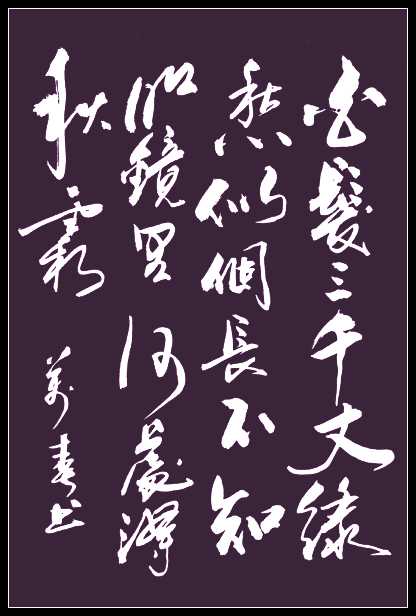 白髮三千丈緣
愁似個長不知
明鏡里何處得
秋霜
萬春书